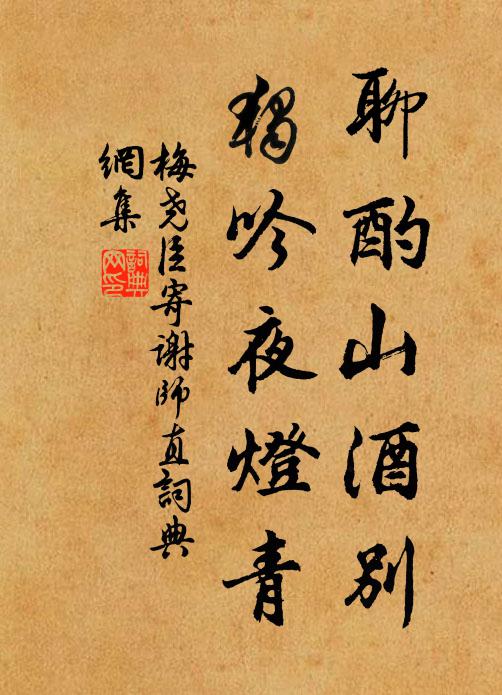 聊酌山酒别
獨吟夜燈青
梅尧臣寄谢師直詞典
網集
詞典
网印